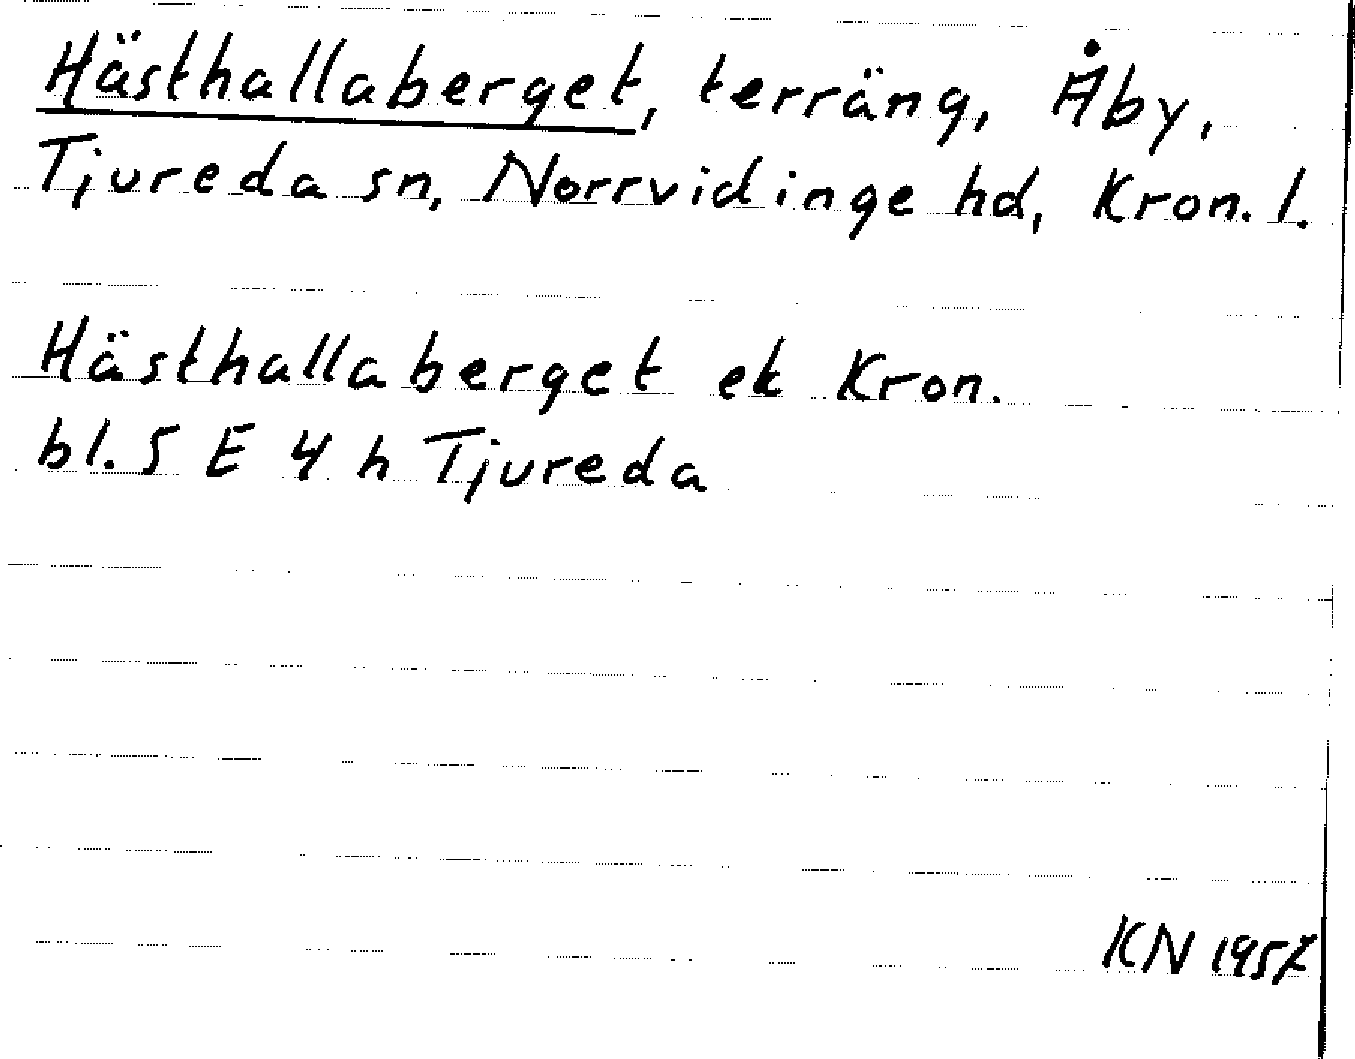 Hästhallaberget, terräng, Åby,
Tjureda sn, Norrvidinge hd, Kron. l.
Hästhallaberget ek Kron.
bl. 5 E 4 h Tjureda
KN 1957